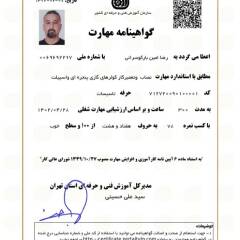 سازمان آموزش فنی و حرفه ای کشور
گواهینامه مهارت
اعطا می گردد به رضا امین بازگوسرائی با شماره ملی ۰۰۶۹۶۹۲۲۱۷
مطابق با استاندارد مهارت نصاب و تعمیرکار کولرهای گازی پنجره ای واسپیلت
کد ۷۱۲۷۲۰۰۹۰۱۰۰۰۱ حرفه تاسیسات
به مدت ۳۰۰ ساعت و بر اساس ارزشیابی مهارت شغلی ۱۴۰۲/۰۴/۲۸
با کسب نمره ۷۸ به حروف هفتاد و هشت از ۱۰۰ و سطح خوب
"به استناد ماده ۶ آیین نامه کارآموزی و افزایش مهارت مصوب ۱۳۴۹/۱۰/۲۷ شورای عالی کار"
مدیرکل آموزش فنی و حرفه ای استان تهران
سید علی حسینی